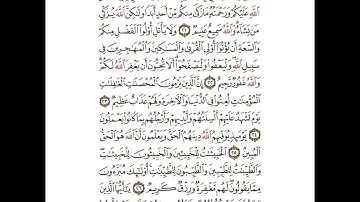 ٱللَّهِ عَلَيْكُمْ وَرَحْمَتُهُۥ مَا زَكَىٰ مِنكُم مِّنْ أَحَدٍ أَبَدًا وَلَٰكِنَّ ٱللَّهَ يُزَكِّى
مَن يَشَآءُ ۗ وَٱللَّهُ سَمِيعٌ عَلِيمٌ ٢١ وَلَا يَأْتَلِ أُو۟لُوا۟ ٱلْفَضْلِ مِنكُمْ
وَٱلسَّعَةِ أَن يُؤْتُوٓا۟ أُو۟لِى ٱلْقُرْبَىٰ وَٱلْمَسَٰكِينَ وَٱلْمُهَٰجِرِينَ فِى
سَبِيلِ ٱللَّهِ ۖ وَلْيَعْفُوا۟ وَلْيَصْفَحُوٓا۟ ۗ أَلَا تُحِبُّونَ أَن يَغْفِرَ ٱللَّهُ لَكُمْ ۗ
وَٱللَّهُ غَفُورٌ رَّحِيمٌ ٢٢ إِنَّ ٱلَّذِينَ يَرْمُونَ ٱلْمُحْصَنَٰتِ ٱلْغَٰفِلَٰتِ
ٱلْمُؤْمِنَٰتِ لُعِنُوا۟ فِى ٱلدُّنْيَا وَٱلْءَاخِرَةِ وَلَهُمْ عَذَابٌ عَظِيمٌ ٢٣
يَوْمَ تَشْهَدُ عَلَيْهِمْ أَلْسِنَتُهُمْ وَأَيْدِيهِمْ وَأَرْجُلُهُم بِمَا كَانُوا۟ يَعْمَلُونَ
٢٤ يَوْمَئِذٍ يُوَفِّيهِمُ ٱللَّهُ دِينَهُمُ ٱلْحَقَّ وَيَعْلَمُونَ أَنَّ ٱللَّهَ هُوَ ٱلْحَقُّ
ٱلْمُبِينُ ٢٥ ٱلْخَبِيثَٰتُ لِلْخَبِيثِينَ وَٱلْخَبِيثُونَ لِلْخَبِيثَٰتِ ۖ
وَٱلطَّيِّبَٰتُ لِلطَّيِّبِينَ وَٱلطَّيِّبُونَ لِلطَّيِّبَٰتِ ۚ أُو۟لَٰٓئِكَ مُبَرَّءُونَ
مِمَّا يَقُولُونَ ۖ لَهُم مَّغْفِرَةٌ وَرِزْقٌ كَرِيمٌ ٢٦ يَٰٓأَيُّهَا ٱلَّذِينَ